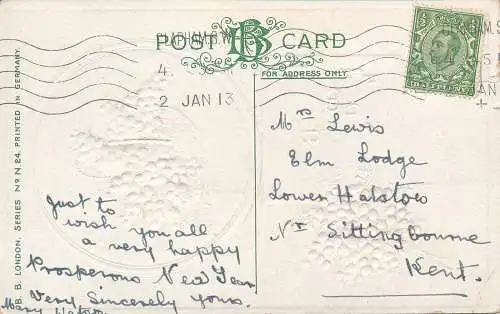 POST BB CARD
FOR ADDRESS ONLY
4.
2 JAN 13
HALFPENNY
B.B. LONDON. SERIES Nº N.24. PRINTED IN GERMANY.
Just to
wish you all
a very happy
Prosperous New Year.
Very Sincerely yours.
Mary
Mrs Lewis
Elm Lodge
Lower Halstow
Nr Sittingbourne
Kent.